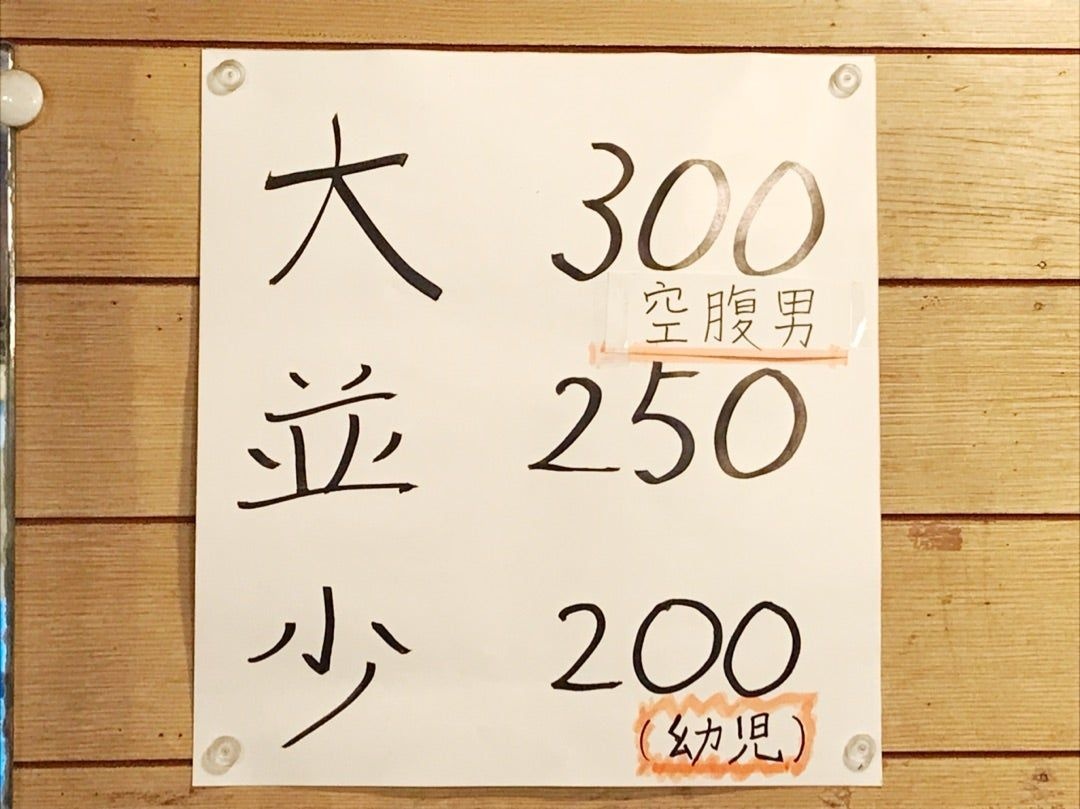 大 300
空腹男
並 250
少 200
(幼児)